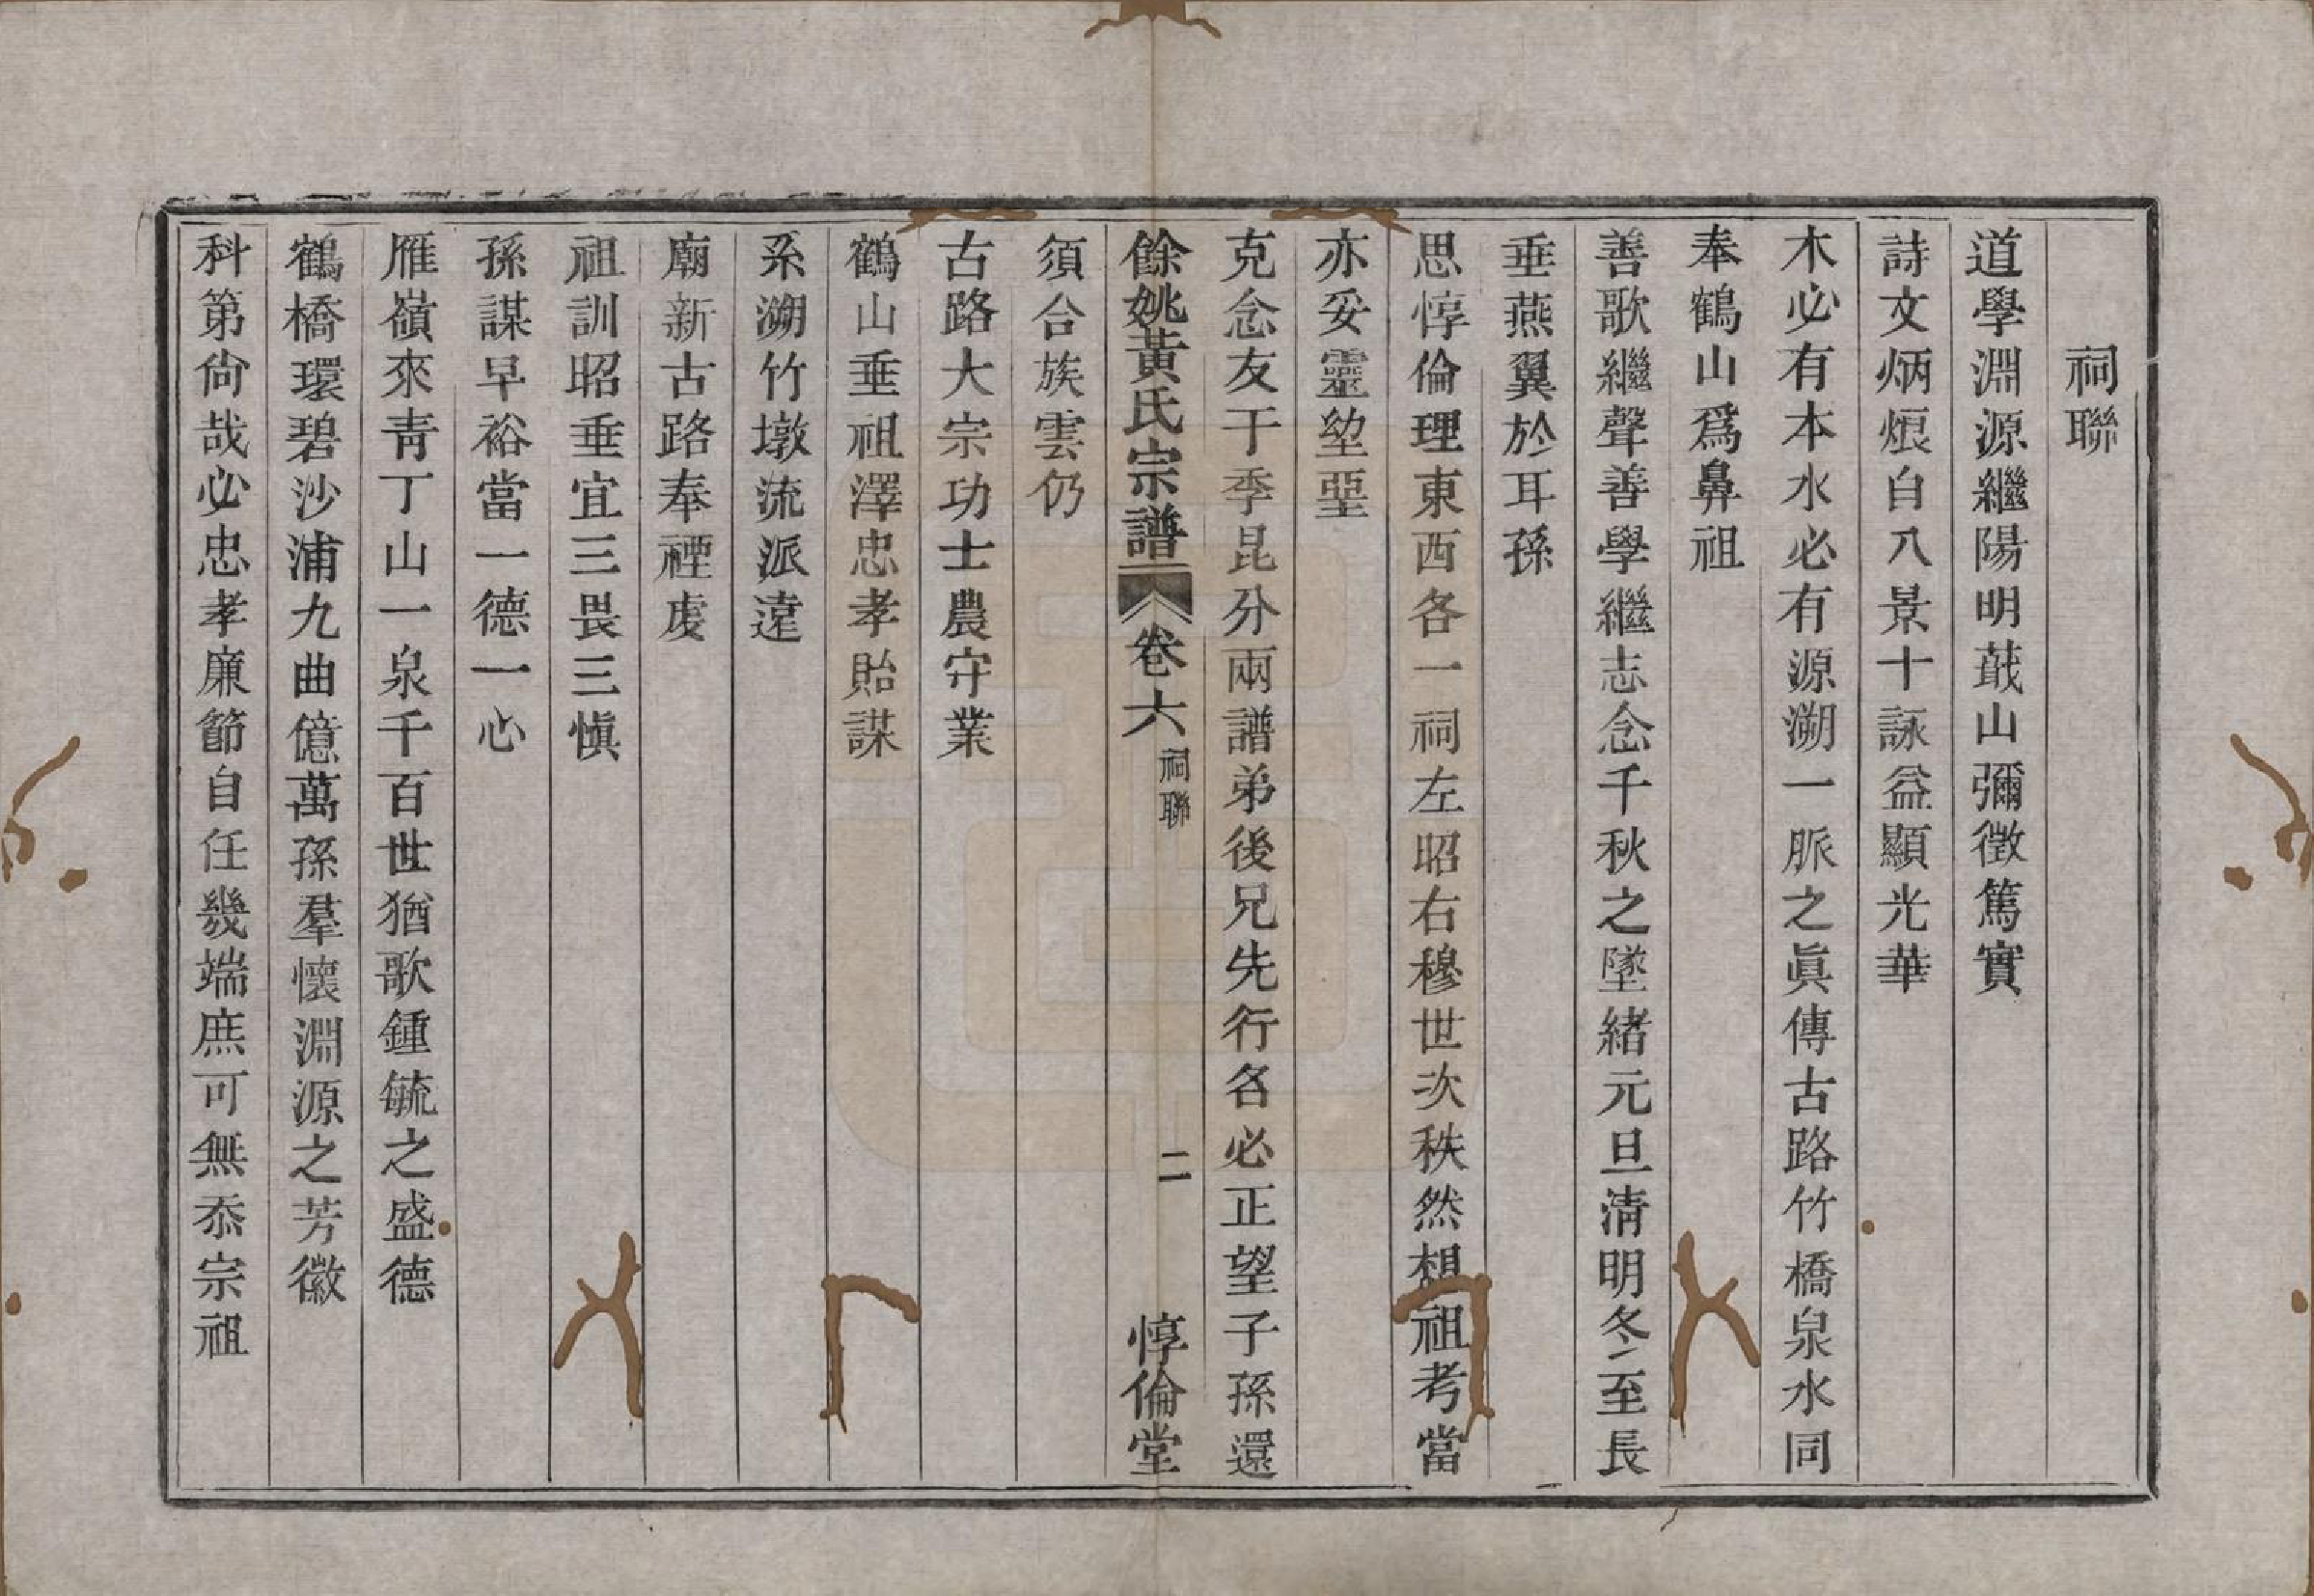 祠聯
道學淵源繼陽明蕺山彌徵篤實
詩文炳烺白八景十詠益顯光華
木必有本水必有源溯一脈之眞傳古路竹橋泉水同
奉鶴山爲鼻祖
善歌繼聲善學繼志念千秋之墜緒元旦清明冬至長
垂燕翼於耳孫
思惇倫理東西各一祠左昭右穆世次秩然想祖考當
亦妥靈坳堊
克念友于季昆分兩譜弟後兄先行名必正望子孫還
餘姚黃氏宗譜 卷六 祠聯 二 惇倫堂
須合族雲仍
古路大宗功士農守業
鶴山垂祖澤忠孝貽謀
系溯竹墩流派遠
廟新古路奉禋虔
祖訓昭垂宜三畏三愼
孫謀早裕當一德一心
雁嶺來青丁山一泉千百世猶歌鍾毓之盛德
鶴橋環碧沙浦九曲億萬孫羣懷淵源之芳徽
科第尙哉必忠孝廉節自任幾端庶可無忝宗祖